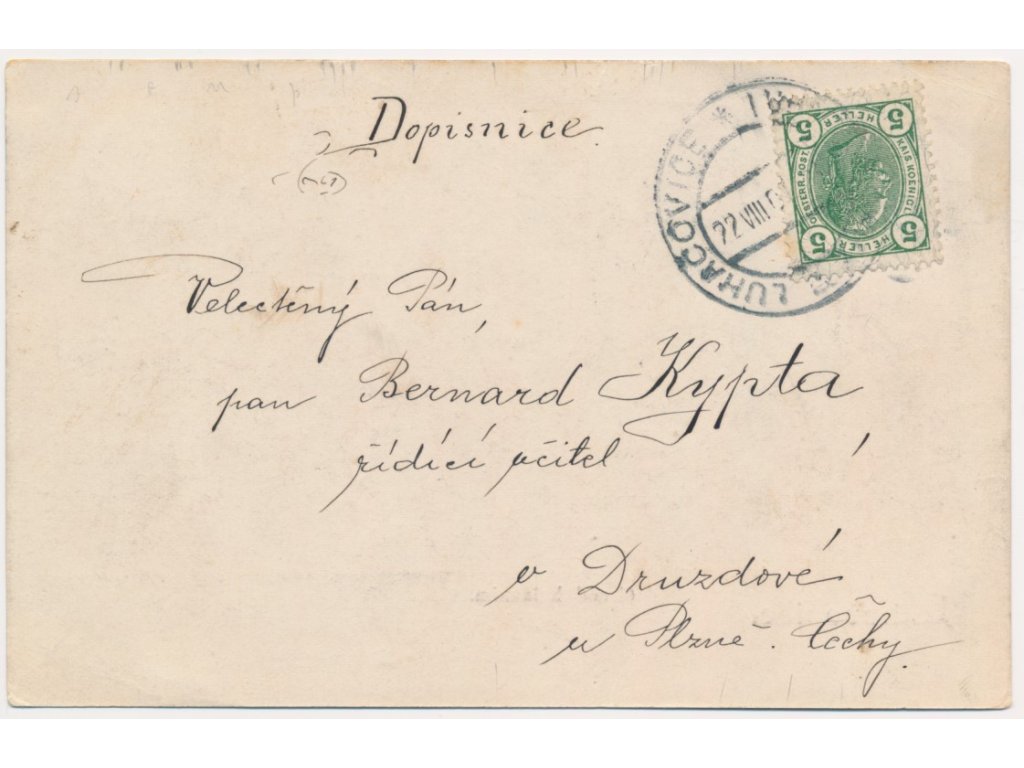 Dopisnice
LUHAČOVICE *
22 VIII
5 HELLER 5
KAIS. KOENIGL.
OESTERR. POST.
5 HELLER 5
Velectěný Pán,
pan Bernard Kypta,
řídící učitel
v Druzdové
u Plzně. Čechy.